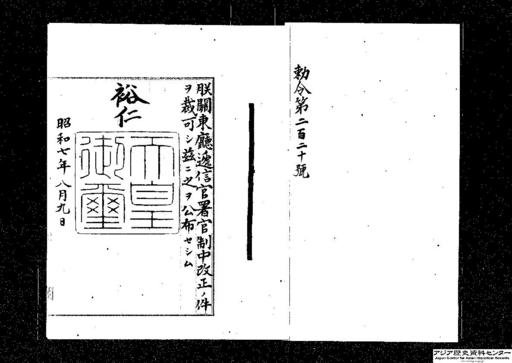 勅令第二百二十號
朕關東廳遞信官署官制中改正ノ件
ヲ裁可シ茲ニ之ヲ公布セシム
裕仁
天皇
御璽
昭和七年八月九日
アジア歴史資料センター
Japan Center for Asian Historical Records